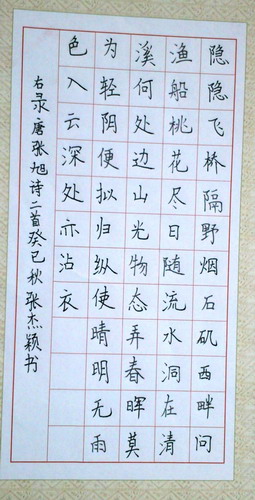 隐隐飞桥隔野烟石矶西畔问
渔船桃花尽日随流水洞在清
溪何处边山光物态弄春晖莫
为轻阴便拟归纵使晴明无雨
色入云深处亦沾衣
右录唐张旭诗二首癸巳秋张杰颖书